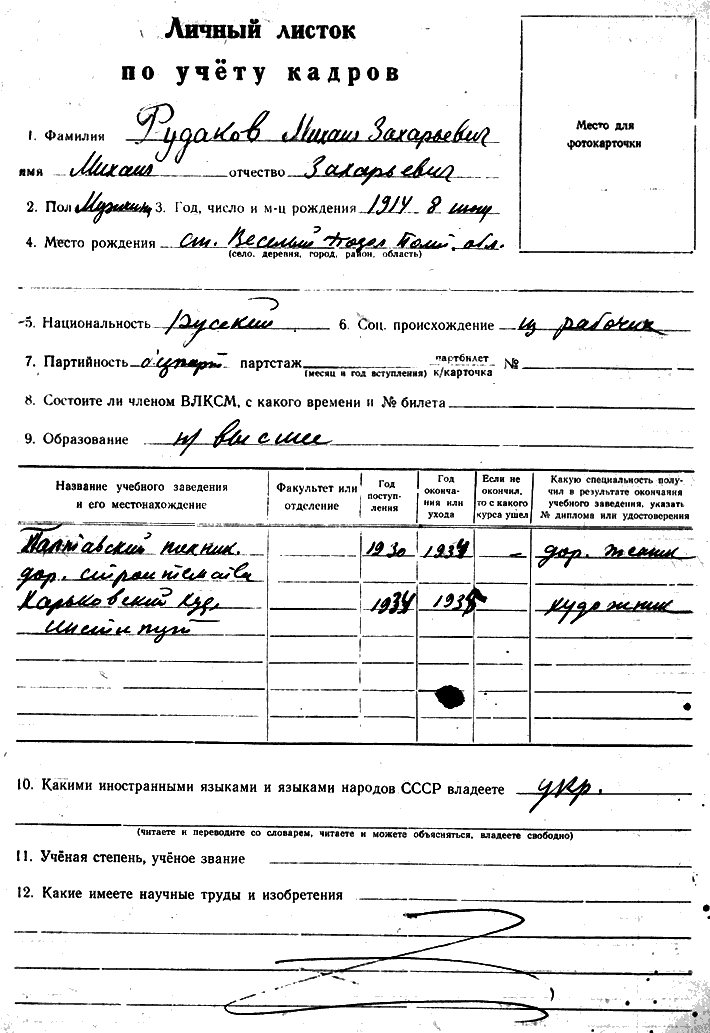 Личный листок
по учёту кадров
Место для
фотокарточки
1. Фамилия Рудаков Михаил Захарьевич
имя Михаил отчество Захарьевич
2. Пол Мужчина 3. Год, число и м-ц рождения 1914 8
4. Место рождения ст. Веселый Подол Полт. обл.
(село, деревня, город, район, область)
5. Национальность русский 6. Соц. происхождение из рабочих
7. Партийность партстаж партбилет №
(месяц и год вступления) к/карточка
8. Состоите ли членом ВЛКСМ, с какого времени и № билета
9. Образование н/высшее
Название учебного заведения и его местонахождение
Факультет или отделение
Год поступ-ления
Год оконча-ния или ухода
Если не окончил, то с какого курса ушел
Какую специальность полу-чил в результате окончания учебного заведения, указать № диплома или удостоверения
Палтавский техник. 1930 1934 — дор. техник
дор. строительства
Харьковский худ. 1934 1938 художник
институт
10. Какими иностранными языками и языками народов СССР владеете укр.
(читаете и переводите со словарем, читаете и можете объясняться, владеете свободно)
11. Учёная степень, учёное звание
12. Какие имеете научные труды и изобретения